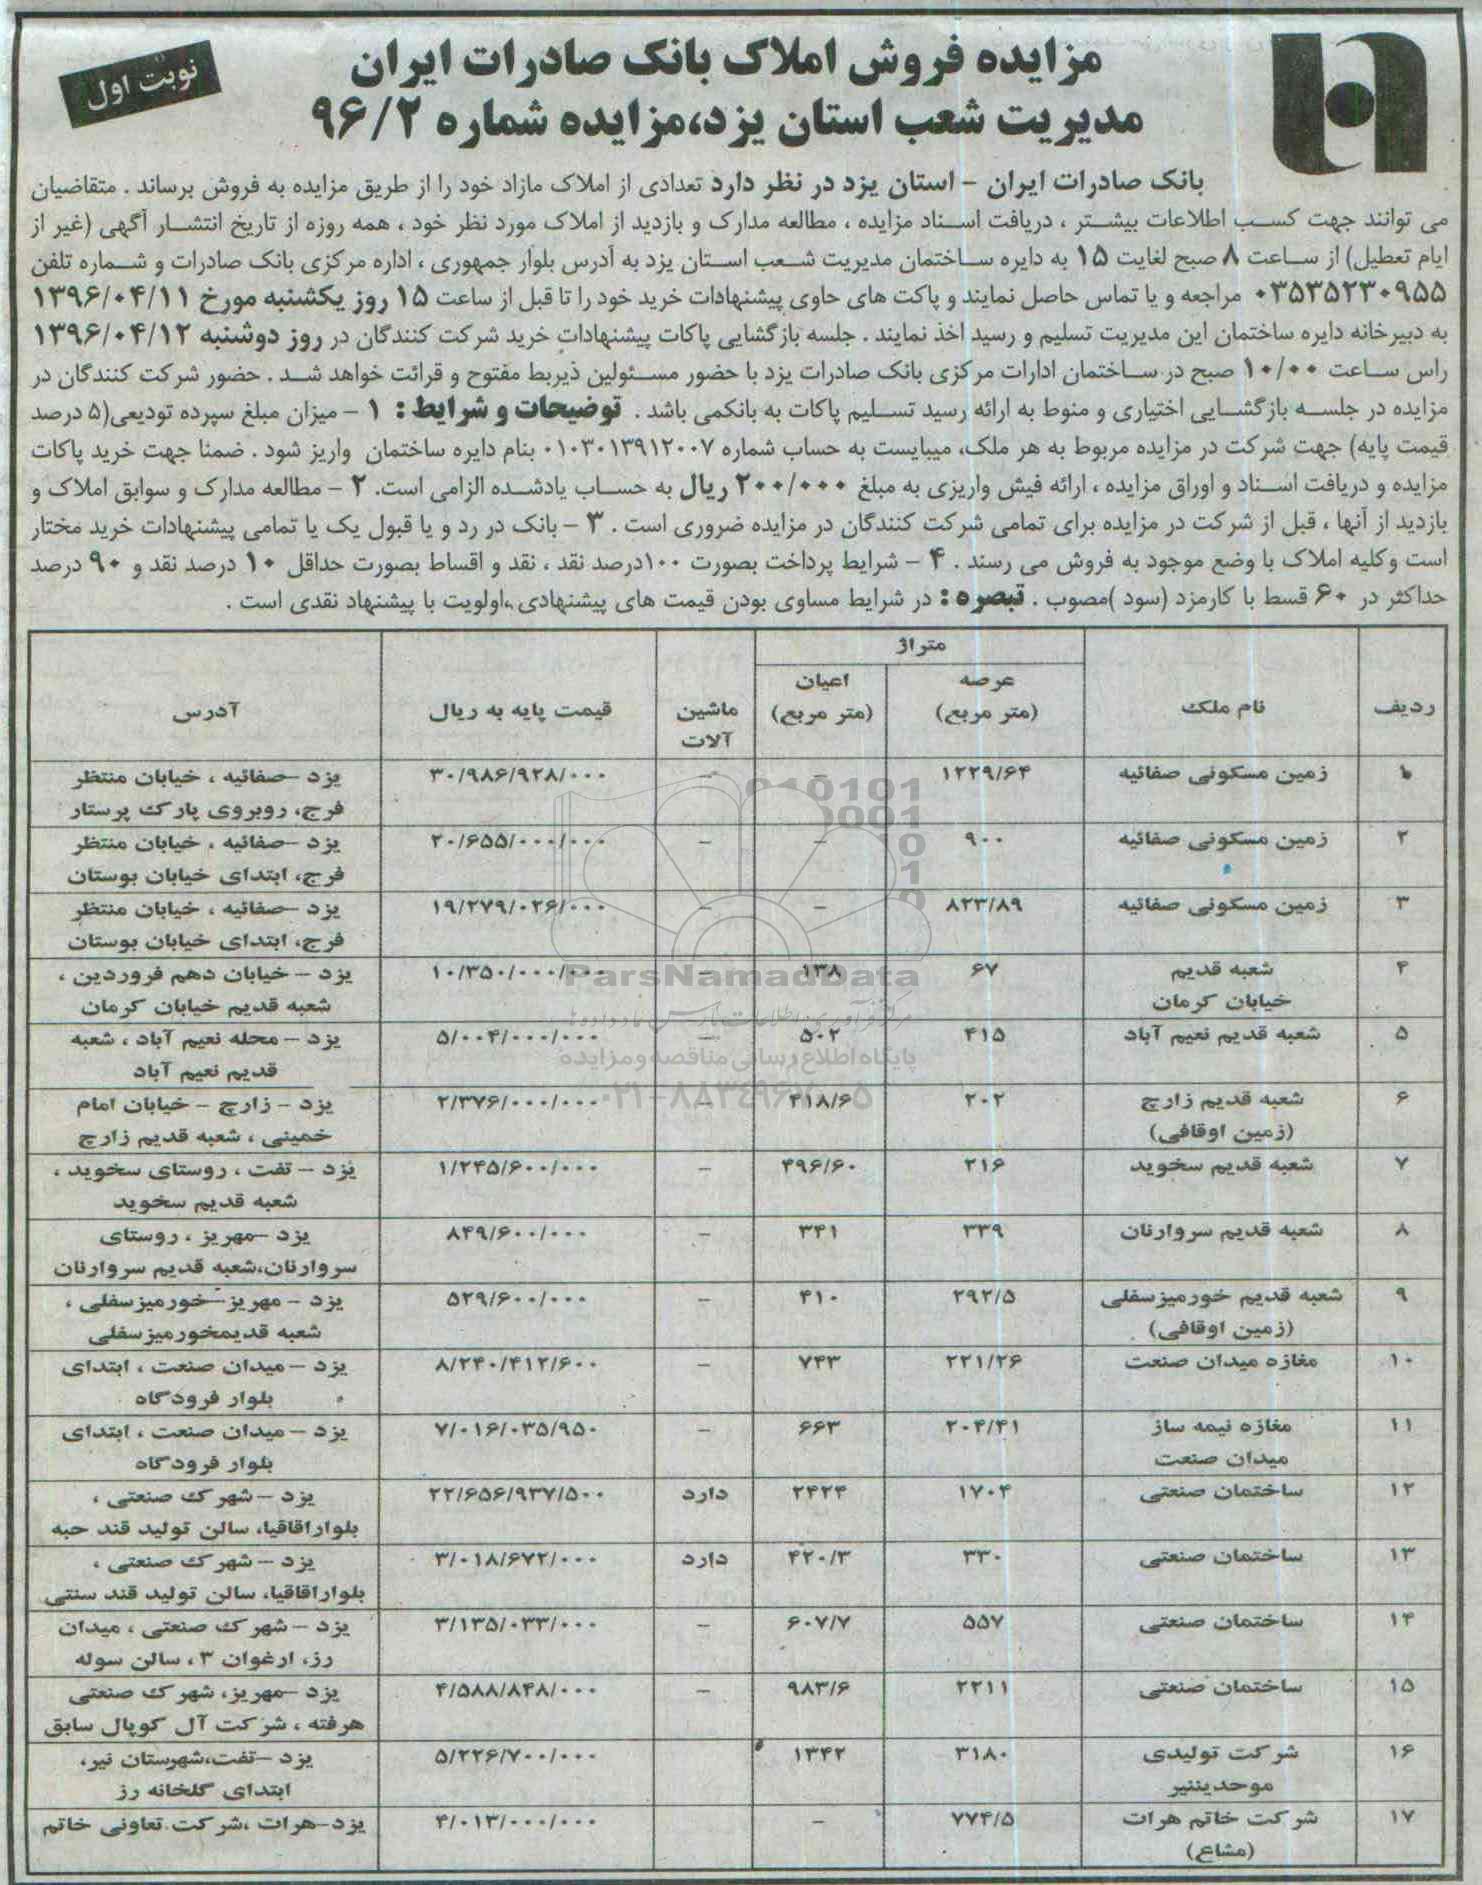 مزایده فروش املاک بانک صادرات ایران
مدیریت شعب استان یزد،مزایده شماره ۹۶/۲
نوبت اول
بانک صادرات ایران - استان یزد در نظر دارد تعدادی از املاک مازاد خود را از طریق مزایده به فروش برساند . متقاضیان
می توانند جهت کسب اطلاعات بیشتر ، دریافت اسناد مزایده ، مطالعه مدارک و بازدید از املاک مورد نظر خود ، همه روزه از تاریخ انتشار آگهی (غیر از
ایام تعطیل) از ساعت ۸ صبح لغایت ۱۵ به دایره ساختمان مدیریت شعب استان یزد به آدرس بلوار جمهوری ، اداره مرکزی بانک صادرات و شماره تلفن
۰۳۵۳۵۲۳۰۹۵۵ مراجعه و یا تماس حاصل نمایند و پاکت های حاوی پیشنهادات خرید خود را تا قبل از ساعت ۱۵ روز یکشنبه مورخ ۱۳۹۶/۰۴/۱۱
به دبیرخانه دایره ساختمان این مدیریت تسلیم و رسید اخذ نمایند . جلسه بازگشایی پاکات پیشنهادات خرید شرکت کنندگان در روز دوشنبه ۱۳۹۶/۰۴/۱۲
راس ساعت ۱۰/۰۰ صبح در ساختمان ادارات مرکزی بانک صادرات یزد با حضور مسئولین ذیربط مفتوح و قرائت خواهد شد . حضور شرکت کنندگان در
مزایده در جلسه بازگشایی اختیاری و منوط به ارائه رسید تسلیم پاکات به بانکمی باشد . توضیحات و شرایط : ۱ - میزان مبلغ سپرده تودیعی(۵ درصد
قیمت پایه) جهت شرکت در مزایده مربوط به هر ملک، میبایست به حساب شماره ۰۱۰۳۰۱۳۹۱۲۰۰۷ بنام دایره ساختمان واریز شود . ضمنا جهت خرید پاکات
مزایده و دریافت اسناد و اوراق مزایده ، ارائه فیش واریزی به مبلغ ۲۰۰/۰۰۰ ریال به حساب یادشده الزامی است. ۲ - مطالعه مدارک و سوابق املاک و
بازدید از آنها ، قبل از شرکت در مزایده برای تمامی شرکت کنندگان در مزایده ضروری است . ۳ - بانک در رد و یا قبول یک یا تمامی پیشنهادات خرید مختار
است وکلیه املاک با وضع موجود به فروش می رسند . ۴ - شرایط پرداخت بصورت ۱۰۰درصد نقد ، نقد و اقساط بصورت حداقل ۱۰ درصد نقد و ۹۰ درصد
حداکثر در ۶۰ قسط با کارمزد (سود )مصوب . تبصره : در شرایط مساوی بودن قیمت های پیشنهادی ،اولویت با پیشنهاد نقدی است .
ردیف | نام ملک | متراژ | عرصه (متر مربع) | اعیان (متر مربع) | ماشین آلات | قیمت پایه به ریال | آدرس
۱ | زمین مسکونی صفائیه | ۱۲۲۹/۶۴ | - | - | ۳۰/۹۸۶/۹۲۸/۰۰۰ | یزد -صفائیه ، خیابان منتظر
فرج، روبروی پارک پرستار
۲ | زمین مسکونی صفائیه | ۹۰۰ | - | - | ۲۰/۶۵۵/۰۰۰/۰۰۰ | یزد -صفائیه ، خیابان منتظر
فرج، ابتدای خیابان بوستان
۳ | زمین مسکونی صفائیه | ۸۲۳/۸۹ | - | - | ۱۹/۲۷۹/۰۲۶/۰۰۰ | یزد -صفائیه ، خیابان منتظر
فرج، ابتدای خیابان بوستان
۴ | شعبه قدیم | ۶۷ | ۱۳۸ | - | ۱۰/۳۵۰/۰۰۰/۰۰۰ | یزد - خیابان دهم فروردین ،
خیابان کرمان | شعبه قدیم خیابان کرمان
۵ | شعبه قدیم نعیم آباد | ۴۱۵ | ۵۰۲ | - | ۵/۰۰۴/۰۰۰/۰۰۰ | یزد - محله نعیم آباد ، شعبه
قدیم نعیم آباد
۶ | شعبه قدیم زارچ | ۲۰۲ | ۴۱۸/۶ | - | ۲/۳۷۶/۰۰۰/۰۰۰ | یزد - زارچ - خیابان امام
(زمین اوقافی) | خمینی ، شعبه قدیم زارچ
۷ | شعبه قدیم سخوید | ۲۱۶ | ۴۹۶/۶۰ | - | ۱/۲۴۵/۶۰۰/۰۰۰ | یزد - تفت ، روستای سخوید ،
شعبه قدیم سخوید
۸ | شعبه قدیم سروارنان | ۳۳۹ | ۳۴۱ | - | ۸۴۹/۶۰۰/۰۰۰ | یزد -مهریز ، روستای
سروارنان،شعبه قدیم سروارنان
۹ | شعبه قدیم خورمیزسفلی | ۲۹۲/۵ | ۴۱۰ | - | ۵۲۹/۶۰۰/۰۰۰ | یزد - مهریز-خورمیزسفلی ،
(زمین اوقافی) | شعبه قدیمخورمیزسفلی
۱۰ | مغازه میدان صنعت | ۲۲۱/۲۶ | ۷۴۳ | - | ۸/۲۴۰/۴۱۲/۶۰۰ | یزد - میدان صنعت ، ابتدای
بلوار فرودگاه
۱۱ | مغازه نیمه ساز | ۲۰۴/۴۱ | ۶۶۳ | - | ۷/۰۱۶/۰۳۵/۹۵۰ | یزد - میدان صنعت ، ابتدای
میدان صنعت | بلوار فرودگاه
۱۲ | ساختمان صنعتی | ۱۷۰۴ | ۲۴۲۴ | دارد | ۲۲/۶۵۶/۹۳۷/۵۰۰ | یزد - شهرک صنعتی ،
بلواراقاقیا، سالن تولید قند حبه
۱۳ | ساختمان صنعتی | ۳۳۰ | ۴۲۰/۳ | دارد | ۳/۰۱۸/۶۷۲/۰۰۰ | یزد - شهرک صنعتی ،
بلواراقاقیا، سالن تولید قند سنتی
۱۴ | ساختمان صنعتی | ۵۵۷ | ۶۰۷/۷ | - | ۳/۱۳۵/۰۳۳/۰۰۰ | یزد - شهرک صنعتی ، میدان
رز، ارغوان ۳ ، سالن سوله
۱۵ | ساختمان صنعتی | ۲۲۱۱ | ۹۸۳/۶ | - | ۴/۵۸۸/۸۴۸/۰۰۰ | یزد -مهریز، شهرک صنعتی
هرفته ، شرکت آل کوپال سابق
۱۶ | شرکت تولیدی | ۳۱۸۰ | ۱۳۴۲ | ۵/۲۲۶/۷۰۰/۰۰۰ | یزد -تفت،شهرستان نیر،
موحدیننیر | ابتدای گلخانه رز
۱۷ | شرکت خاتم هرات | ۷۷۴/۵ | - | ۴/۰۱۳/۰۰۰/۰۰۰ | یزد-هرات ،شرکت تعاونی خاتم
(مشاع)
ParsNamadData
پایگاه اطلاع رسانی مناقصه و مزایده
۰۲۱-۸۸۳۴۹۶۷۰-۵